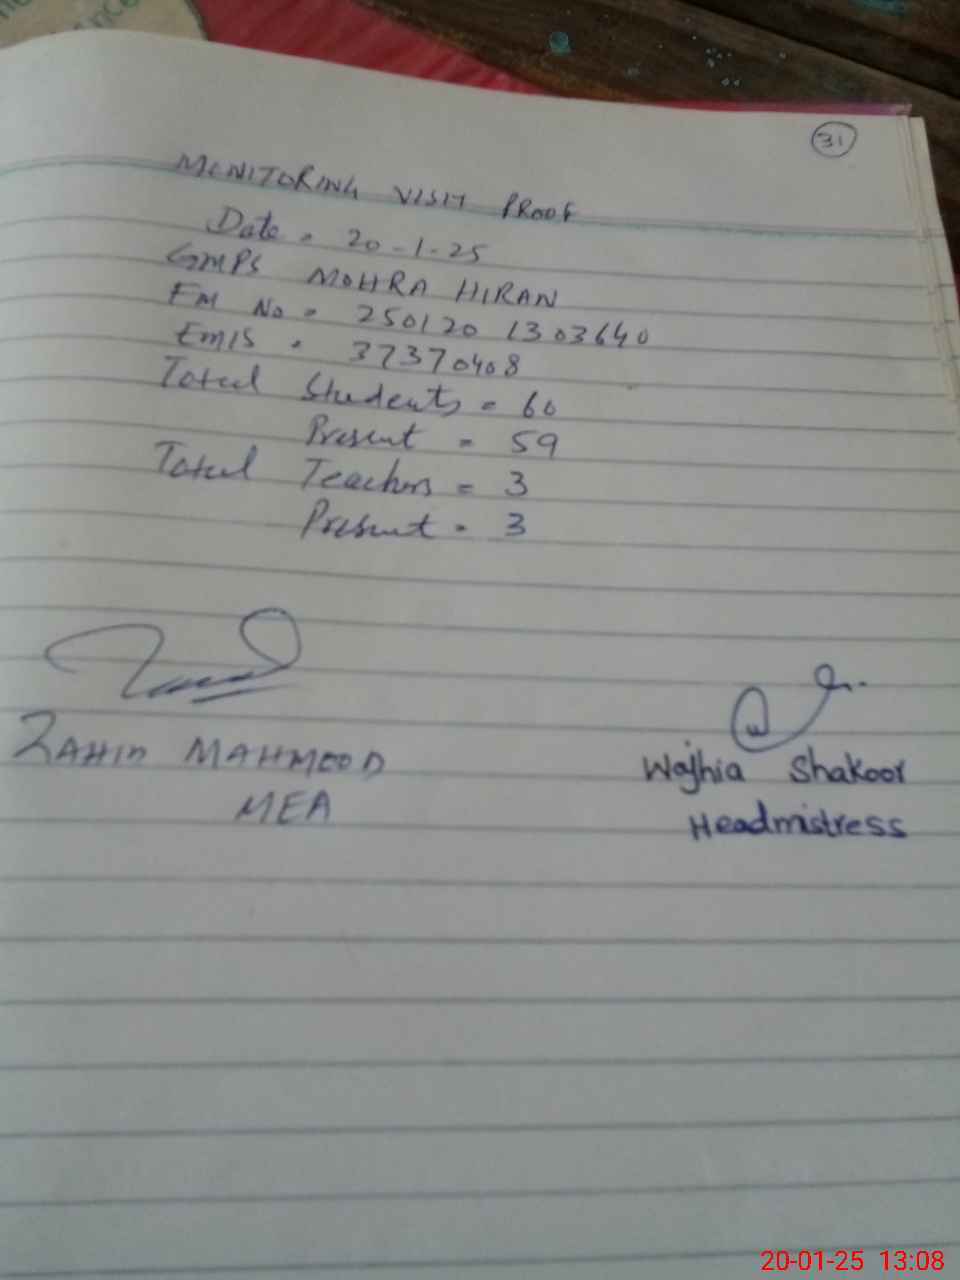 31
MONITORING VISIT PROOF
Date = 20-1-25
GMPS MOHRA HIRAN
FM No = 250120 1303640
EMIS = 37370408
Total Students = 60
Present = 59
Total Teachers = 3
Present = 3
ZAHID MAHMOOD
MEA
Wajhia Shakoor
Headmistress
20-01-25 13:08